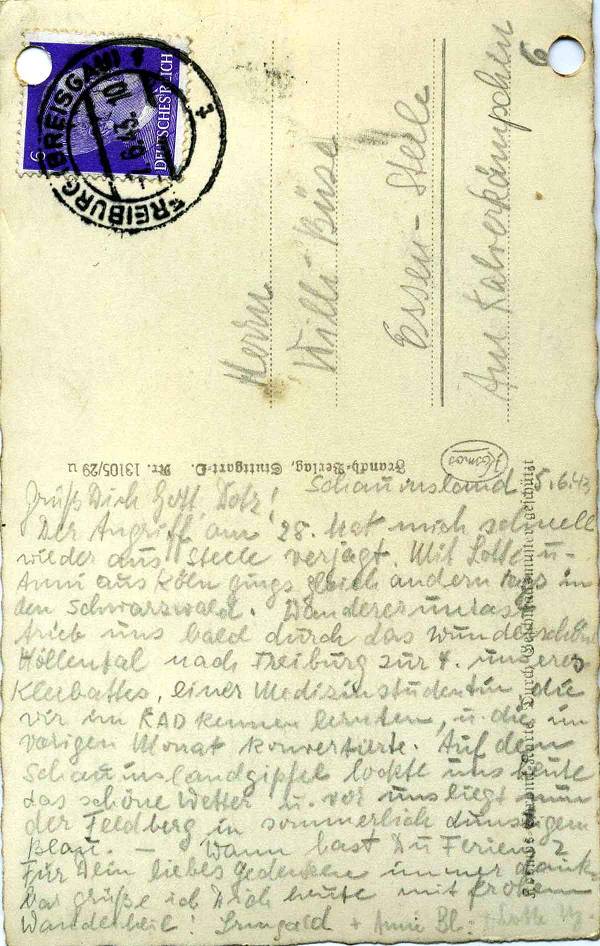 FREIBURG (BREISGAU) 1
6.43. 10
DEUTSCHES REICH
6
6
Herrn
Willi Büse
Essen-Steele
Am Kalverkämpchen
Franckh-Verlag, Stuttgart-O. Nr. 13105/29 u
Kosmos
Schauinsland, 5.6.43
Grüß Dich Gott,
Der Angriff am 28. hat mich schnell
wieder aus Steele verjagt. Mit Lotte u.
Anni aus Köln gings gleich andern tags in
den Schwarzwald. Wanderer
trieb uns bald durch das wunderschöne
Höllental nach Freiburg zur 4. unseres
Kleeblattes, einer Medizinstudentin, die
wir im RAD kennen lernten, u. die im
vorigen Monat konvertierte. Auf dem
Schauinslandgipfel lockte uns heute
das schöne Wetter u. vor uns liegt nun
der Feldberg in sommerlich dunstigem
Blau. — Wann hast Du Ferien?
Für Dein liebes Gedenken immer dank-
bar grüße ich Dich heute mit frohem
Wanderheil! Irmgard + Anni Bl. + Lotte